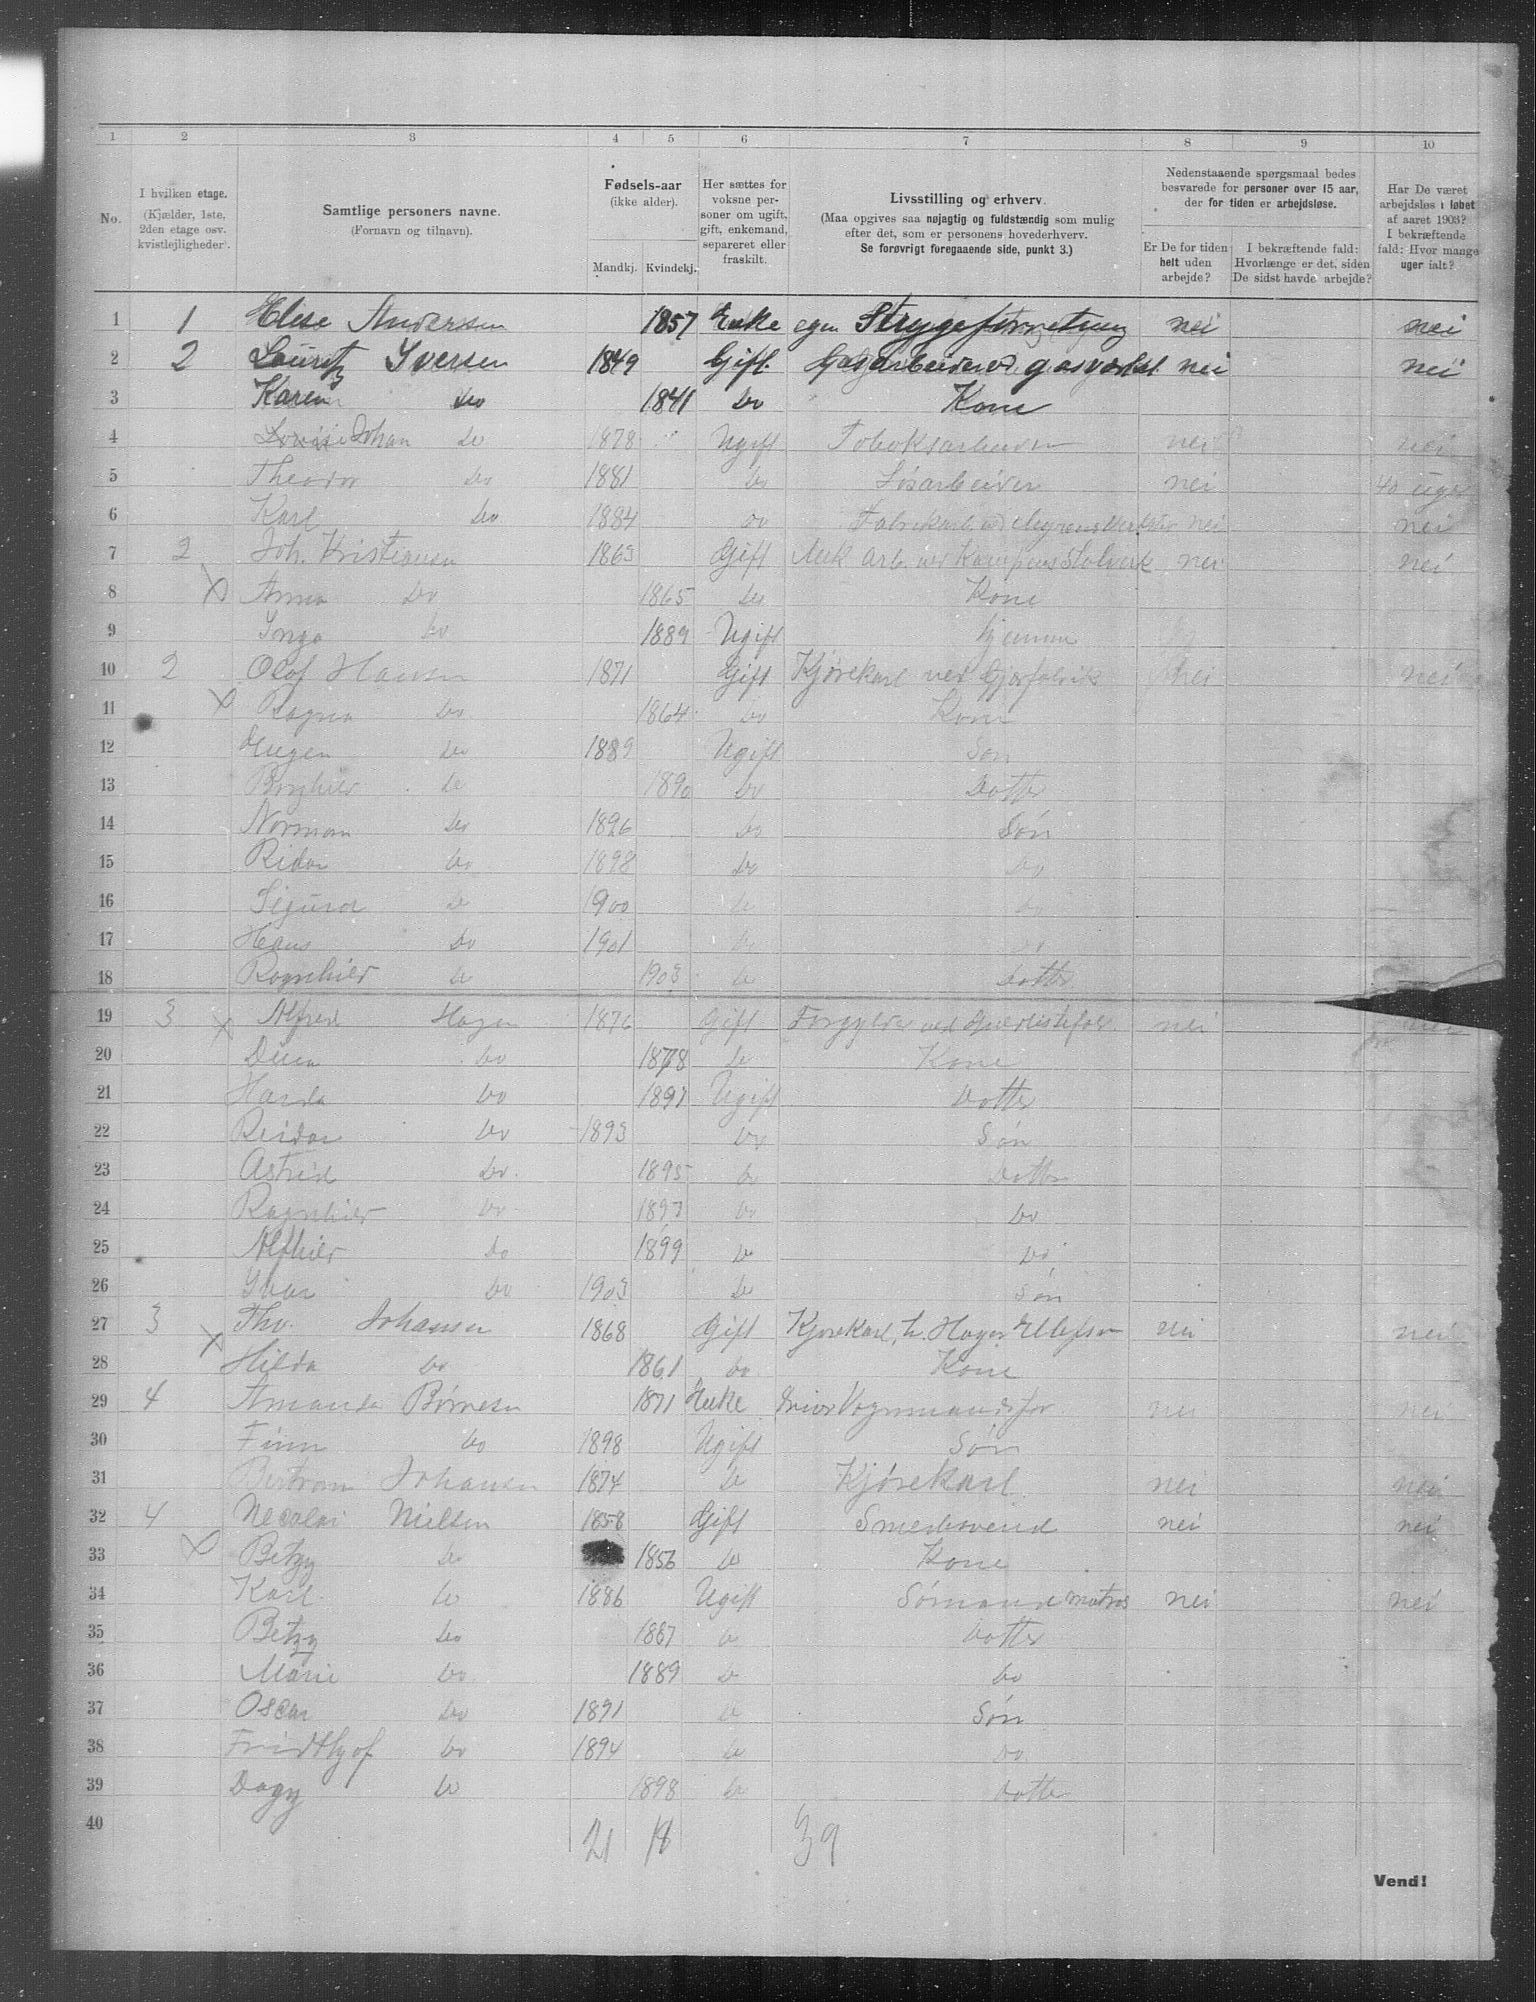 1 2 3 4 5 6 7 8 9 10
No.
I hvilken etage.
(Kjælder, 1ste,
2den etage osv.
kvistlejligheder).
Samtlige personers navne.
(Fornavn og tilnavn).
Fødsels-aar
(ikke alder).
Mandkj. Kvindekj.
Her sættes for
voksne per-
soner om ugift,
gift, enkemand,
separeret eller
fraskilt.
Livsstilling og erhverv.
(Maa opgives saa nøjagtig og fuldstændig som mulig
efter det, som er personens hovederhverv.
Se forøvrigt foregaaende side, punkt 3.)
Nedenstaaende spørgsmaal bedes
besvarede for personer over 15 aar,
der for tiden er arbejdsløse.
Er De for tiden
helt uden
arbejde?
I bekræftende fald:
Hvorlænge er det, siden
De sidst havde arbejde?
Har De været
arbejdsløs i løbet
af aaret 1903?
I bekræftende
fald: Hvor mange
uger ialt?
1 1 Elise Andersen 1857 Enke egen Strygeforretning nei nei
2 2 Lauritz Iversen 1849 Gift. Gasarbeider v. gasværket nei nei
3 Karen Do 1841 Do Kone
4 Johan Do 1878 Ugift Tobaksarbeider nei nei
5 Theodor Do 1881 Do Løsarbeider nei 40 uger
6 Karl Do 1884 Do nei nei
7 2 Joh. Kristiansen 1863 Gift Mek arb. ved Kampens Stolverk nei nei
8 X Anna Do 1865 Do Kone
9 Inga Do 1889 Ugift hjemme
10 2 Olaf Hansen 1871 Gift Kjørekarl ved Gjærfabrik nei nei
11 X Ragna Do 1864 Do Kone
12 Eugen Do 1889 Ugift Søn
13 Borghild Do 1890 Do Datter
14 Norman Do 1896 Do Søn
15 Ridar Do 1898 Do Do
16 Sigurd Do 1900 Do Do
17 Hans Do 1901 Do Do
18 Ragnhild Do 1903 Do Datter
19 3 X Alfred Hagen 1876 Gift Forgylder ved nei nei
20 Dina Do 1878 Do Kone
21 Do 1897 Ugift Datter
22 Reidar Do 1893 Do Søn
23 Astrid Do 1895 Do Datter
24 Ragnhild Do 1897 Do Do
25 Alfhild Do 1899 Do Do
26 Ivar Do 1903 Do Søn
27 3 X Thv. Johansen 1868 Gift Kjørekarl h. Hagen Ellefsen nei nei
28 Hilda Do 1861 Do Kone
29 4 Amanda Børnesen 1871 Enke driver Vognmandsfor nei nei
30 Finn Do 1898 Ugift Søn
31 Bertram Johansen 1874 Do Kjørekarl nei nei
32 4 Necolai Nielsen 1858 Gift Smedsvend nei nei
33 X Betzy Do 1856 Do Kone
34 Karl Do 1886 Ugift Sømand matros nei nei
35 Betzy Do 1887 Do Datter
36 Marie Do 1889 Do Do
37 Oscar Do 1891 Do Søn
38 Fridthjof Do 1894 Do Do
39 Dagny Do 1898 Do Datter
40 21 18 39
Vend!